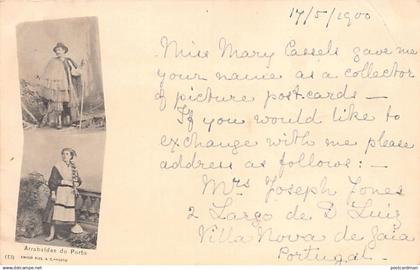 17/5/1900
Miss Mary Cassels gave me
your name as a collector
of picture post-cards –
If you would like to
exchange with me please
address as follows: –
Mrs Joseph Jones
2 Largo de D. Luiz
Villa Nova de Gaia
Portugal –
Arrabaldes do Porto
postcardman